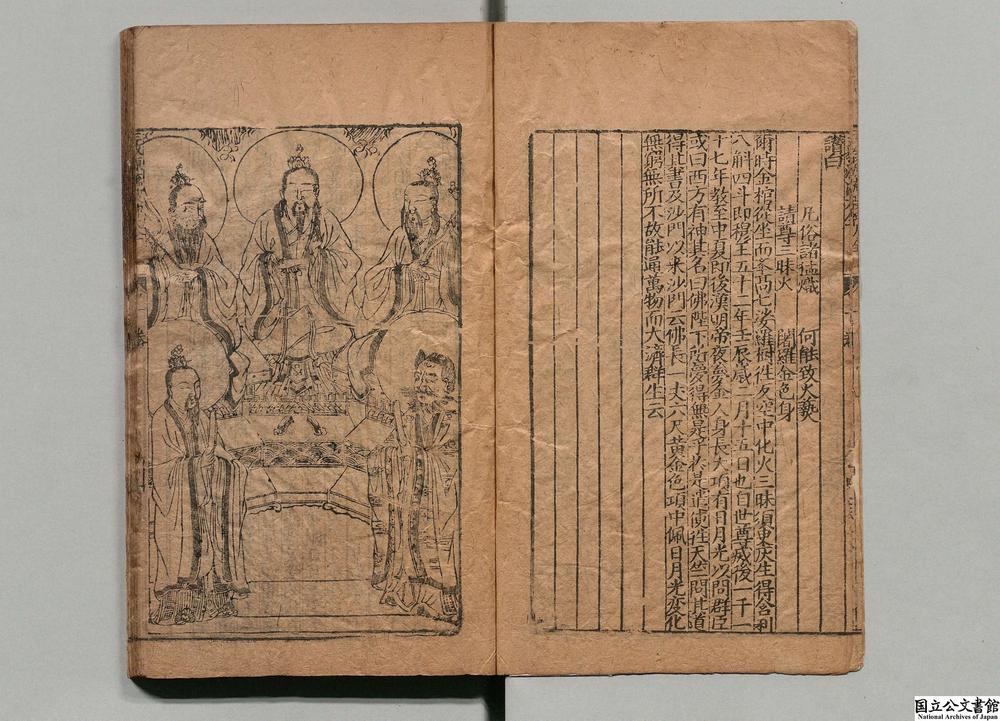 讃曰
凡俗諸猛熾　何能致火爇
請尊三昧火　闍維金色身
爾時金棺從坐而舉高七㴻羅樹徃反空中化火三昧須臾灰生得舍利
八斛四斗即穆王五十二年壬辰歲二月十五日也自世尊滅後一千一
十七年教至中夏即後漢明帝夜夢金人身長大項有日月光以問群臣
或曰西方有神其名曰佛陛下所夢得無是乎於是遣使徃天竺問其道
得其書及沙門以来沙門云佛長一丈六尺黃金色項中佩日月光变化
無窮無所不故能通萬物而大济群生云
国立公文書館
National Archives of Japan